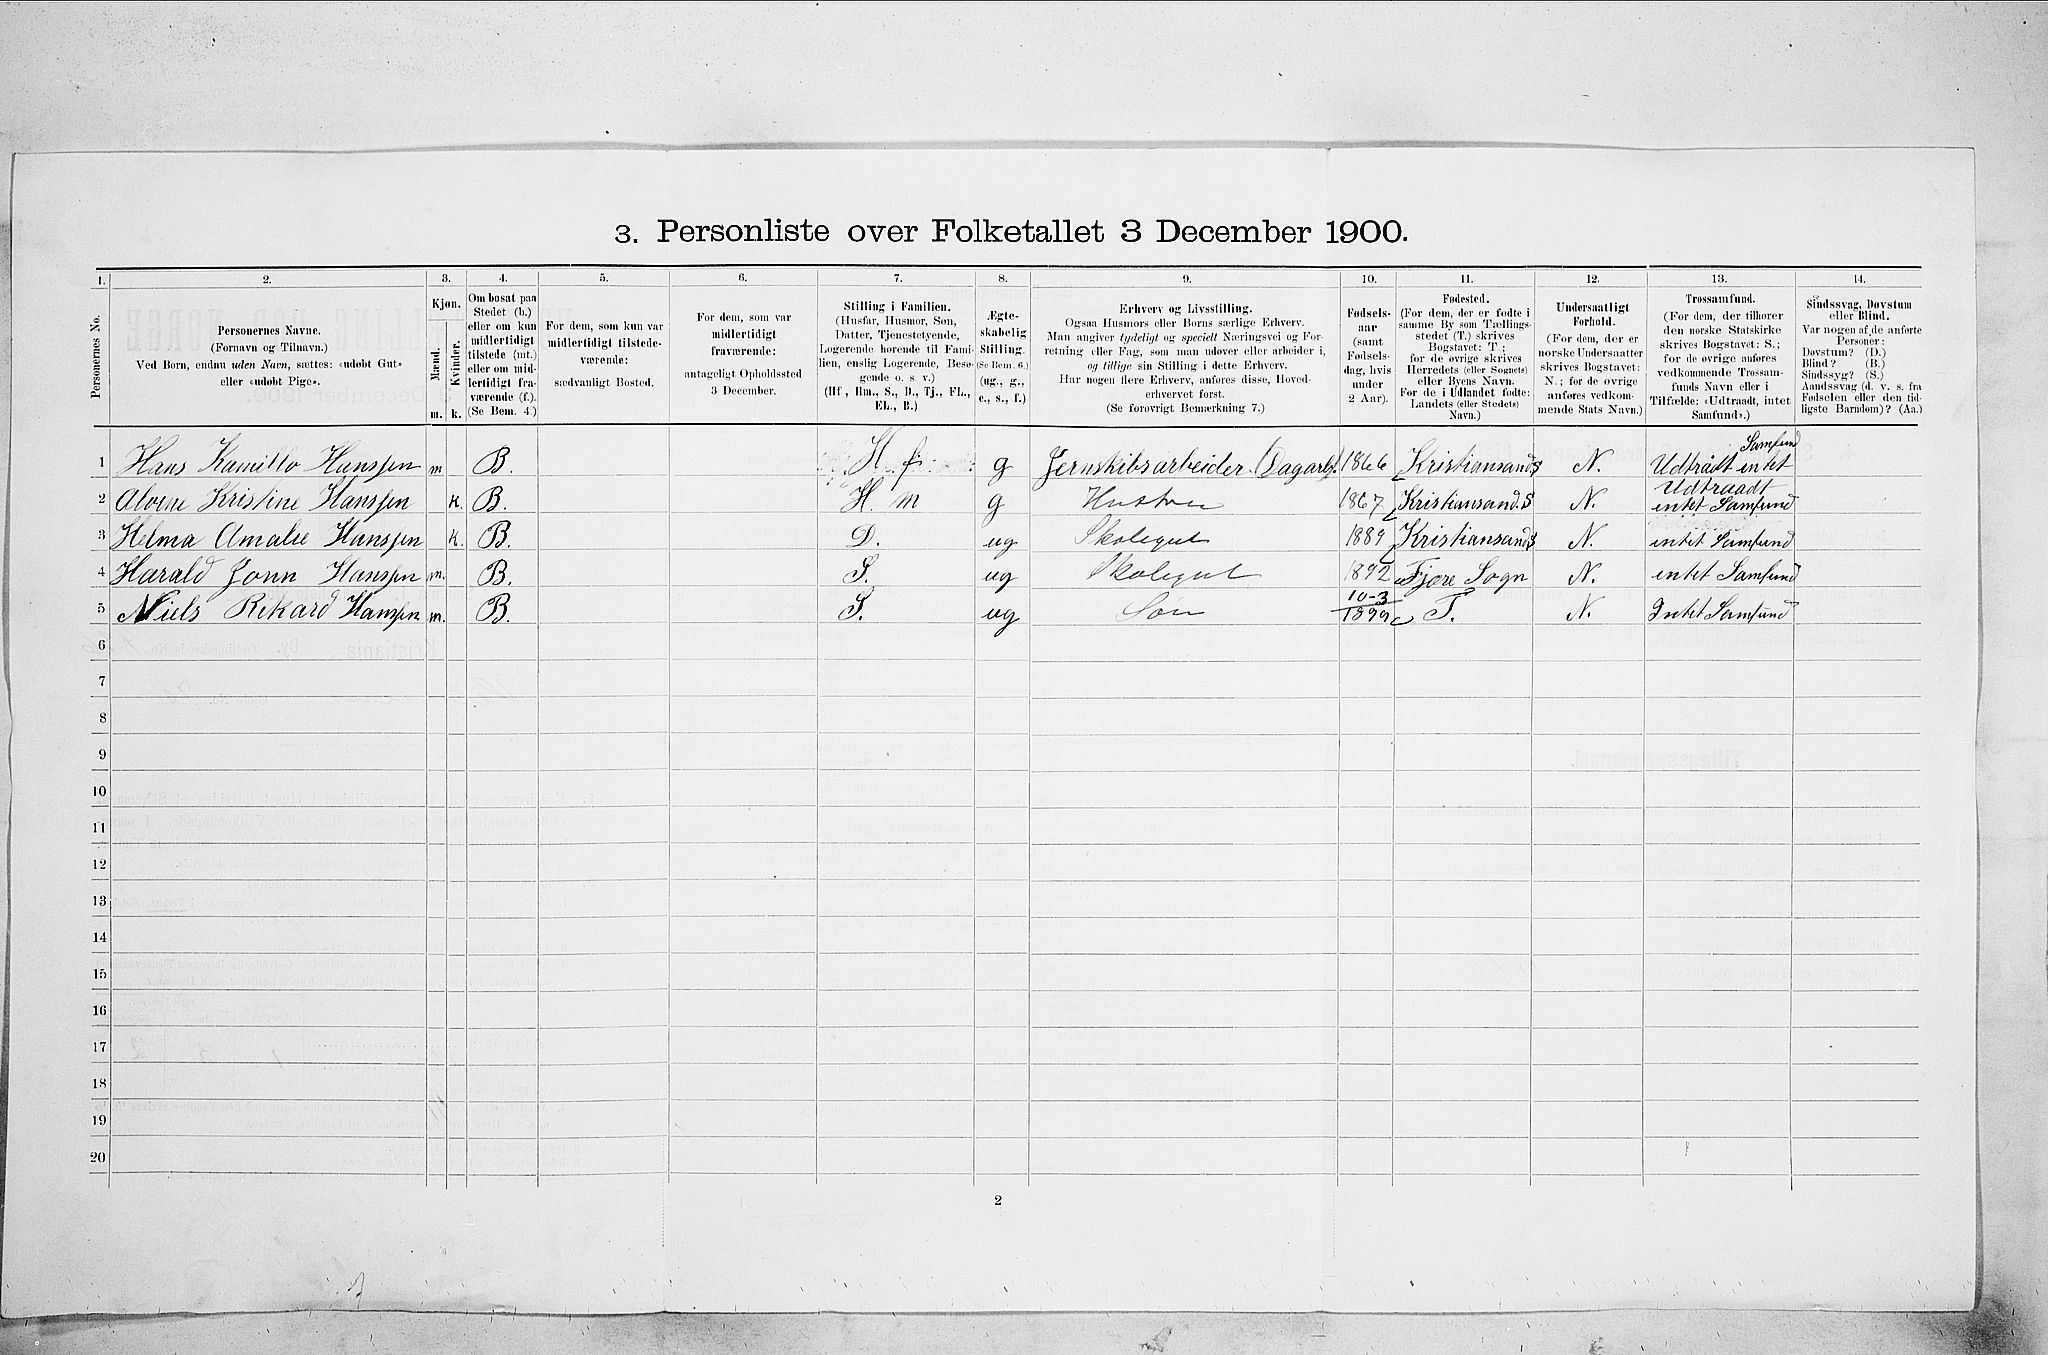 3. Personliste over Folketallet 3 December 1900.
1. 2. 3. 4. 5. 6. 7. 8. 9. 10. 11. 12. 13. 14.
Personernes No.
Personernes Navne.
(Fornavn og Tilnavn.)
Ved Børn, endnu uden Navn, sættes: «udøbt Gut»
eller «udøbt Pige».
Kjøn.
Mænd. Kvinder.
m. k.
Om bosat paa
Stedet (b.)
eller om kun
midlertidigt
tilstede (mt.)
eller om mid-
lertidigt fra-
værende (f.).
(Se Bem. 4.)
For dem, som kun var
midlertidigt tilstede-
værende:
sædvanligt Bosted.
For dem, som var
midlertidigt
fraværende:
antageligt Opholdssted
3 December.
Stilling i Familien.
(Husfar, Husmor, Søn,
Datter, Tjenestetyende,
Logerende hørende til Fami-
lien, enslig Logerende, Besø-
gende o. s. v.)
(Hf., Hm., S., D., Tj., FL.,
EL., B.)
Ægte-
skabelig
Stilling.
(Se Bem. 6.)
(ug., g.,
e., s., f.)
Erhverv og Livsstilling.
Ogsaa Husmors eller Børns særlige Erhverv.
Man angiver tydeligt og specielt Næringsvei og For-
retning eller Fag, som man udøver eller arbeider i,
og tillige sin Stilling i dette Erhverv.
Har nogen flere Erhverv, anføres disse, Hoved-
erhvervet først.
(Se forøvrigt Bemærkning 7.)
Fødsels-
aar
(samt
Fødsels-
dag, hvis
under
2 Aar).
Fødested.
(For dem, der er fødte i
samme By som Tællings-
stedet (T.) skrives
Bogstavet: T.;
for de øvrige skrives
Herredets (eller Sognets)
eller Byens Navn.
For de i Udlandet fødte:
Landets (eller Stedets)
Navn.)
Undersaatligt
Forhold.
(For dem, der er
norske Undersaatter
skrives Bogstavet:
N.; for de øvrige
anføres vedkom-
mende Stats Navn.)
Trossamfund.
(For dem, der tilhører
den norske Statskirke
skrives Bogstavet: S.;
for de øvrige anføres
vedkommende Trossam-
funds Navn eller i
Tilfælde: «Udtraadt, intet
Samfund».)
Sindssvag, Døvstum
eller Blind.
Var nogen af de anførte
Personer:
Døvstum? (D.)
Blind? (B.)
Sindssyg? (S.)
Aandssvag (d. v. s. fra
Fødselen eller den tid-
ligste Barndom)? (Aa.)
1 Hans Kamillo Hanssen m B. H. f. g Jernskibsarbeider (Dagarb). 1866 Kristiansands N. Udtrådt intet Samfund
2 Alvine Kristine Hanssen k. B. H. m g Hustru 1867 Kristiansand.S N. Udtraadt intet Samfund
3 Helma Amalie Hanssen k. B. D. ug Skolegut 1889 Kristiansands N. intet Samfund
4 Harald Jonn Hanssen m. B. S. ug Skolegut 1892 Fjære Sogn N. intet Samfund
5 Niels Rikard Hanssen m. B. S. ug Søn 10-3 1899 T. N. Intet Samfund
6
7
8
9
10
11
12
13
14
15
16
17
18
19
20
2